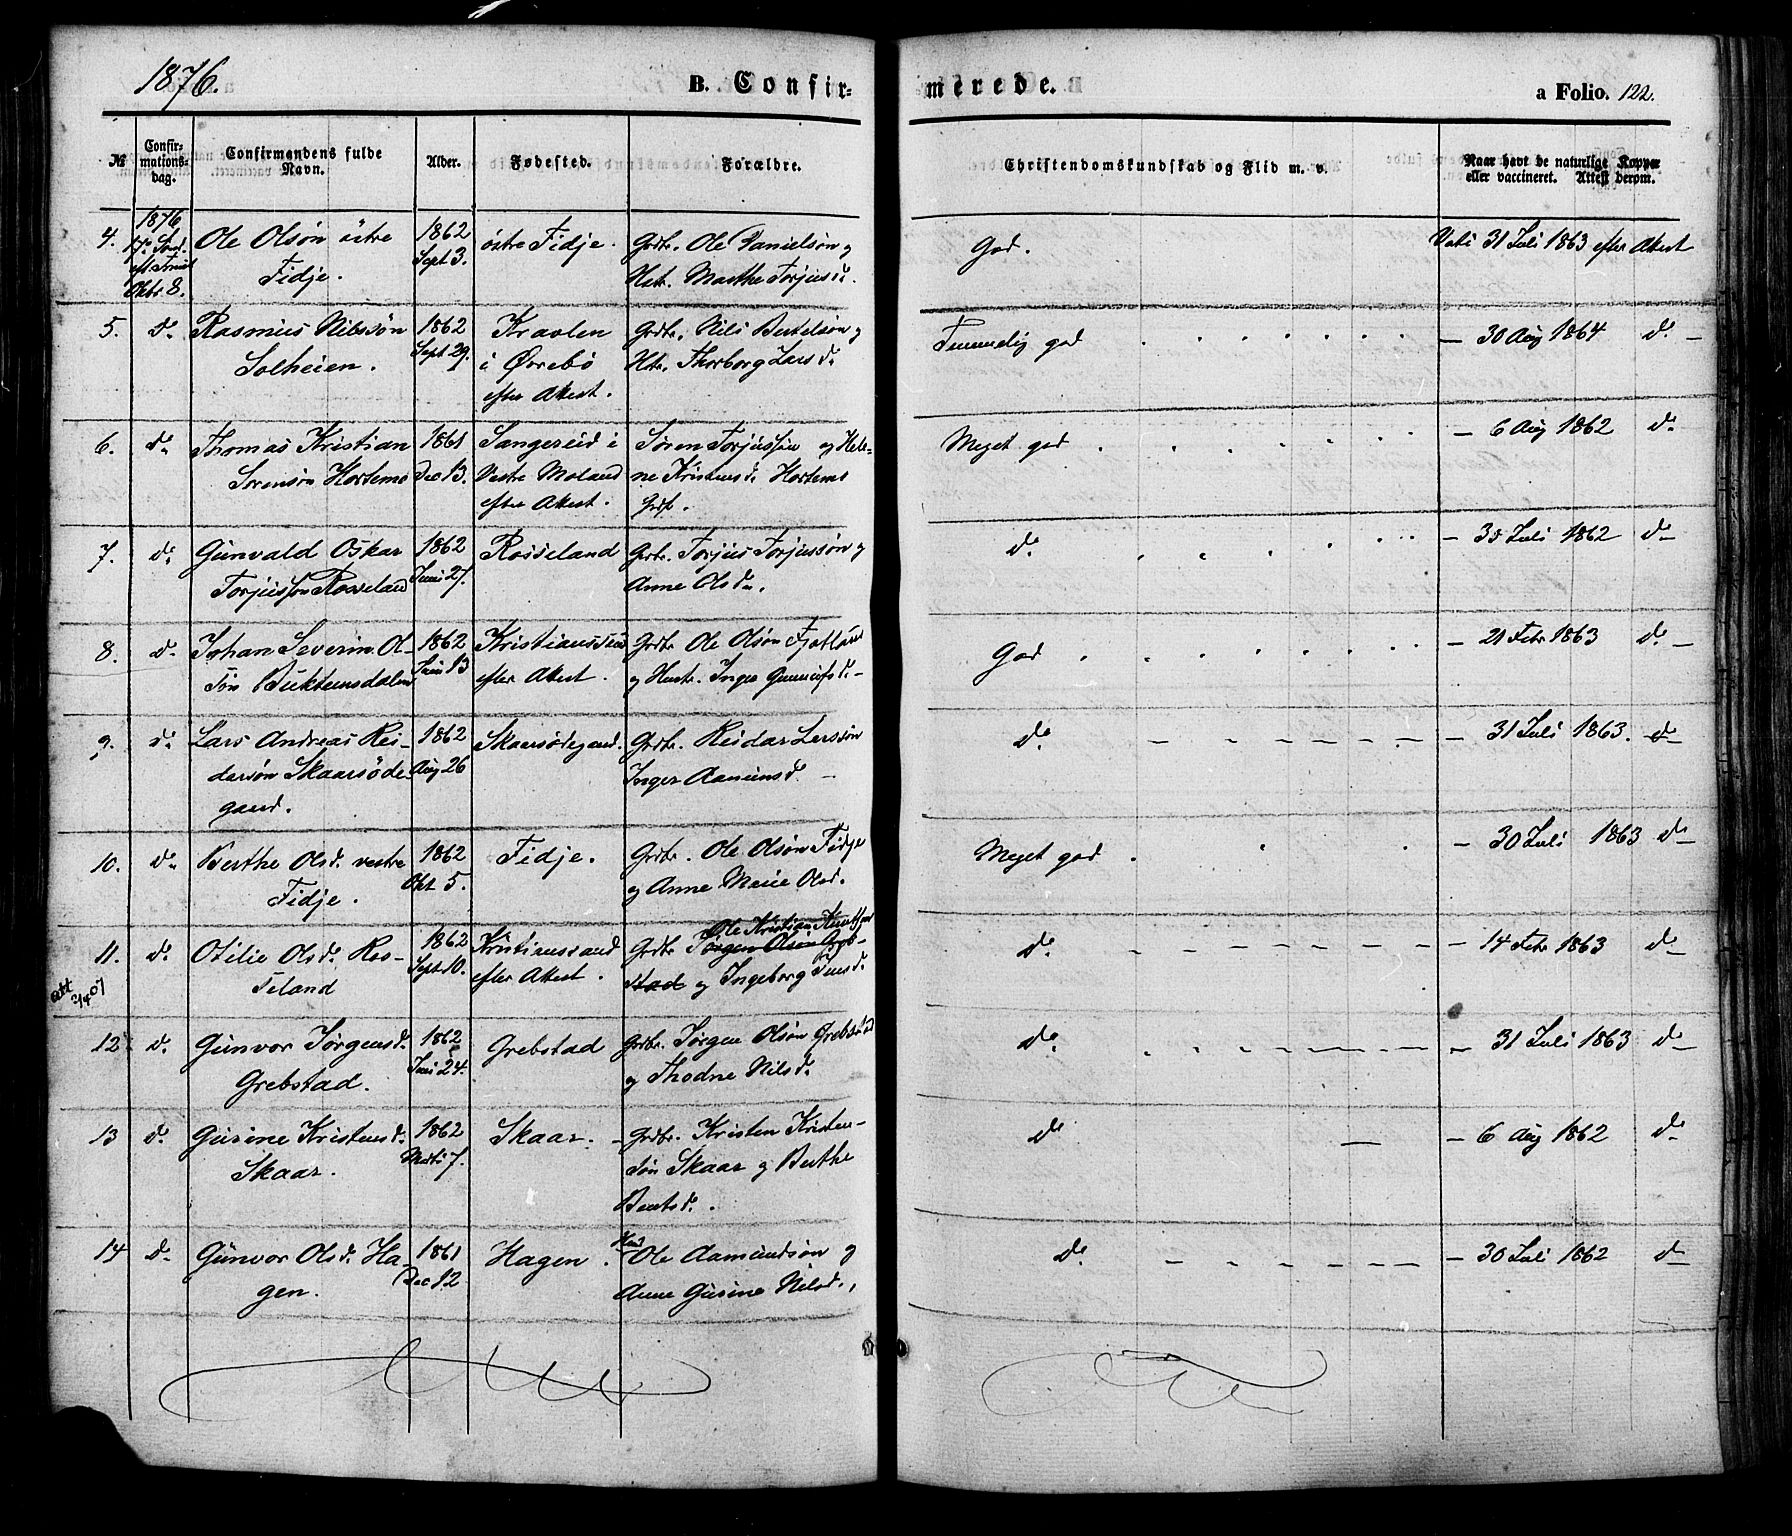 1876.
B. Confir-
merede.
a Folio. 122.
№
Confir-
mations-
dag.
Confirmandens fulde
Navn.
Alder.
Fødested.
Forældre.
Christendomskundskab og Flid m. v.
Naar havt de naturlige Kopper
eller vaccineret. Attest derom.
4.
1876
17de Sønd.
Oktbr 8.
Ole Olsøn östre
Fidje.
1862
Sept 3.
östre Fidje.
Grdbr. Ole Danielsøn og
Hstr. Marthe Torjusd.
God.
31 Juli 1863 efter Attest
5.
do
Rasmus Nilssøn
Solheien.
1862
Sept 29.
Kravlen
i Øvrebö
efter Attest.
Grdbr. Nils Bertelsøn og
Hstr. Thorborg Larsd.
Temmelig god
— 30 Aug 1864 do —
6.
do
Thomas Kristian
Sørensøn Hortemo
1861
Dec 13.
Sangereid i
Vestre Moland
efter Attest.
Sören Torjussøn og Hele-
ne Kristensd. Hortemo
Grdf.
Meget god
— 6 Aug 1862 do
7.
do
Gunvald Oskar
Torjussøn Rosseland
1862
Juni 27.
Rosseland
Grdbr. Torjus Torjussøn og
Anne Olsd.
do
— 30 Juli 1862 do
8.
do
Johan Severin Ol-
søn
1862
Juni 13
Kristianssund
efter Attest.
Grdbr. Ole Olsøn
og Hustr. Inger
God
— 21 Febr 1863 do
9.
do
Lars Andreas Rei-
darsøn Skaarsöde-
gaard.
1862
Aug 26
Skaarsödegaard.
Grdbr. Reidar Larssøn
Inger Aamunsd.
do
— 31 Juli 1863. do
10.
do
Berthe Olsd. vestre
Fidje.
1862
Okt 5.
Fidje.
Grdbr. Ole Olsøn Fidje
og Anne Marie Olsd.
Meget god
— 30 Juli 1863 do
11.
do
Otilie Olsd. Ros-
seland
1862
Sept 10.
Kristianssand
efter Attest.
Ole Kristian
Grdbr. Jörgen Olsøn Greb-
stad og Ingeborg Jensd.
do
— 14 Febr 1863 do
12
do
Gunvor Jörgensd.
Grebstad.
1862
Juni 24.
Grebstad
Grdbr. Jörgen Olsøn Grebstad
og Thodne Nilsd.
do
— 31 Juli 1863 do
13
do
Gusine Kristensd.
Skaar.
1862
7.
Skaar.
Grdbr. Kristen Kristen-
søn Skaar og Berthe
Berntsd.
do
— 6 Aug 1862 do
14
do
Gunvor Olsd. Ha-
gen.
1861
Dec 12
Hagen.
Ole Aamundsøn og
Anne Gusine Nilsd.
do
— 30 Juli 1862 do